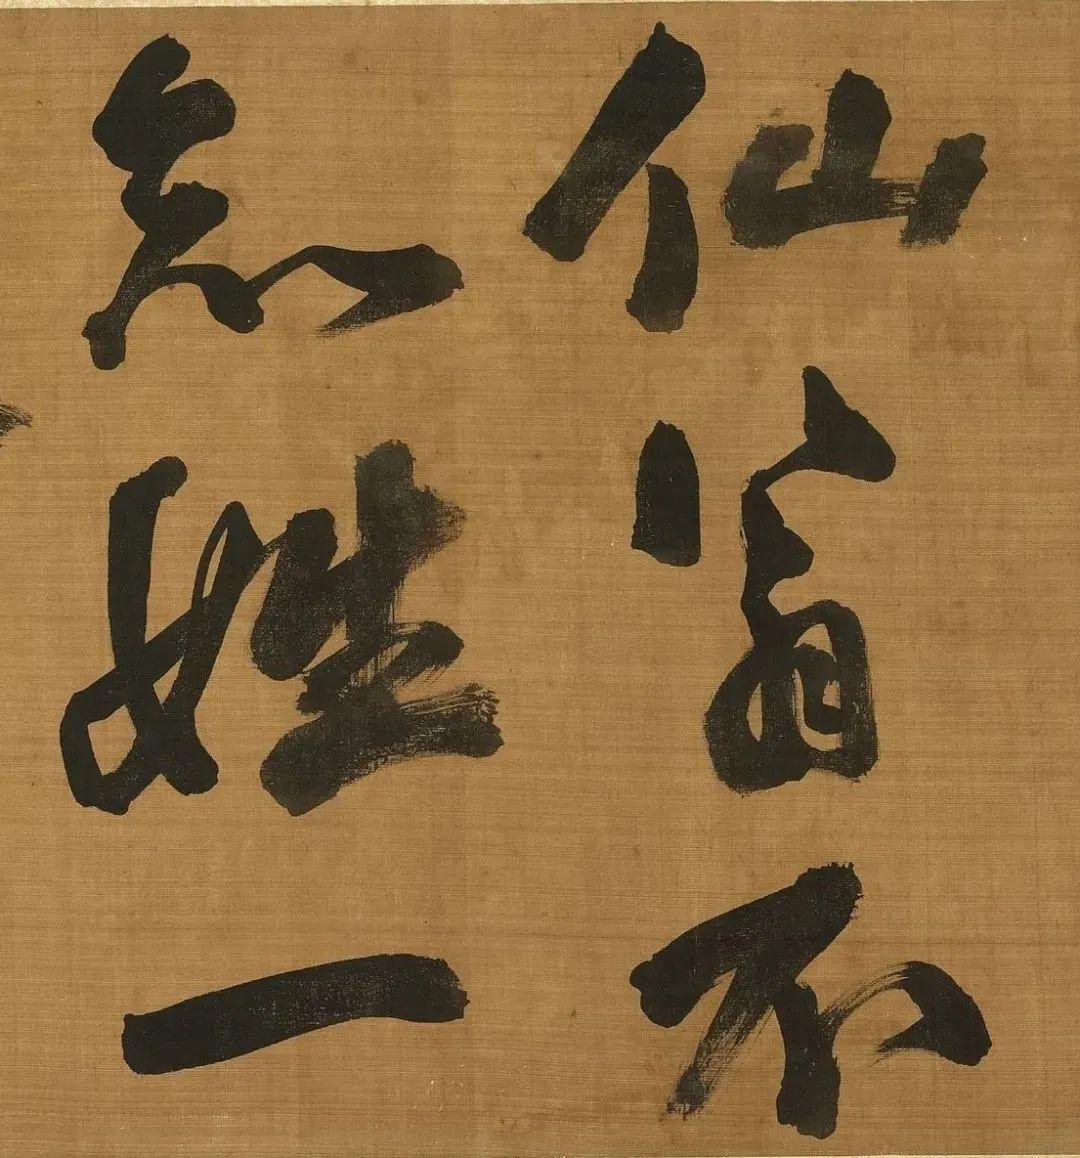 仙翁不
知姓一